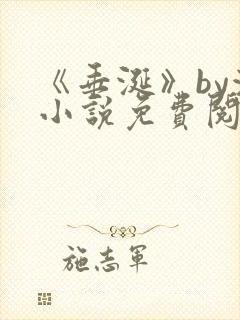 《垂涎》by
小說免費閱
施志軍